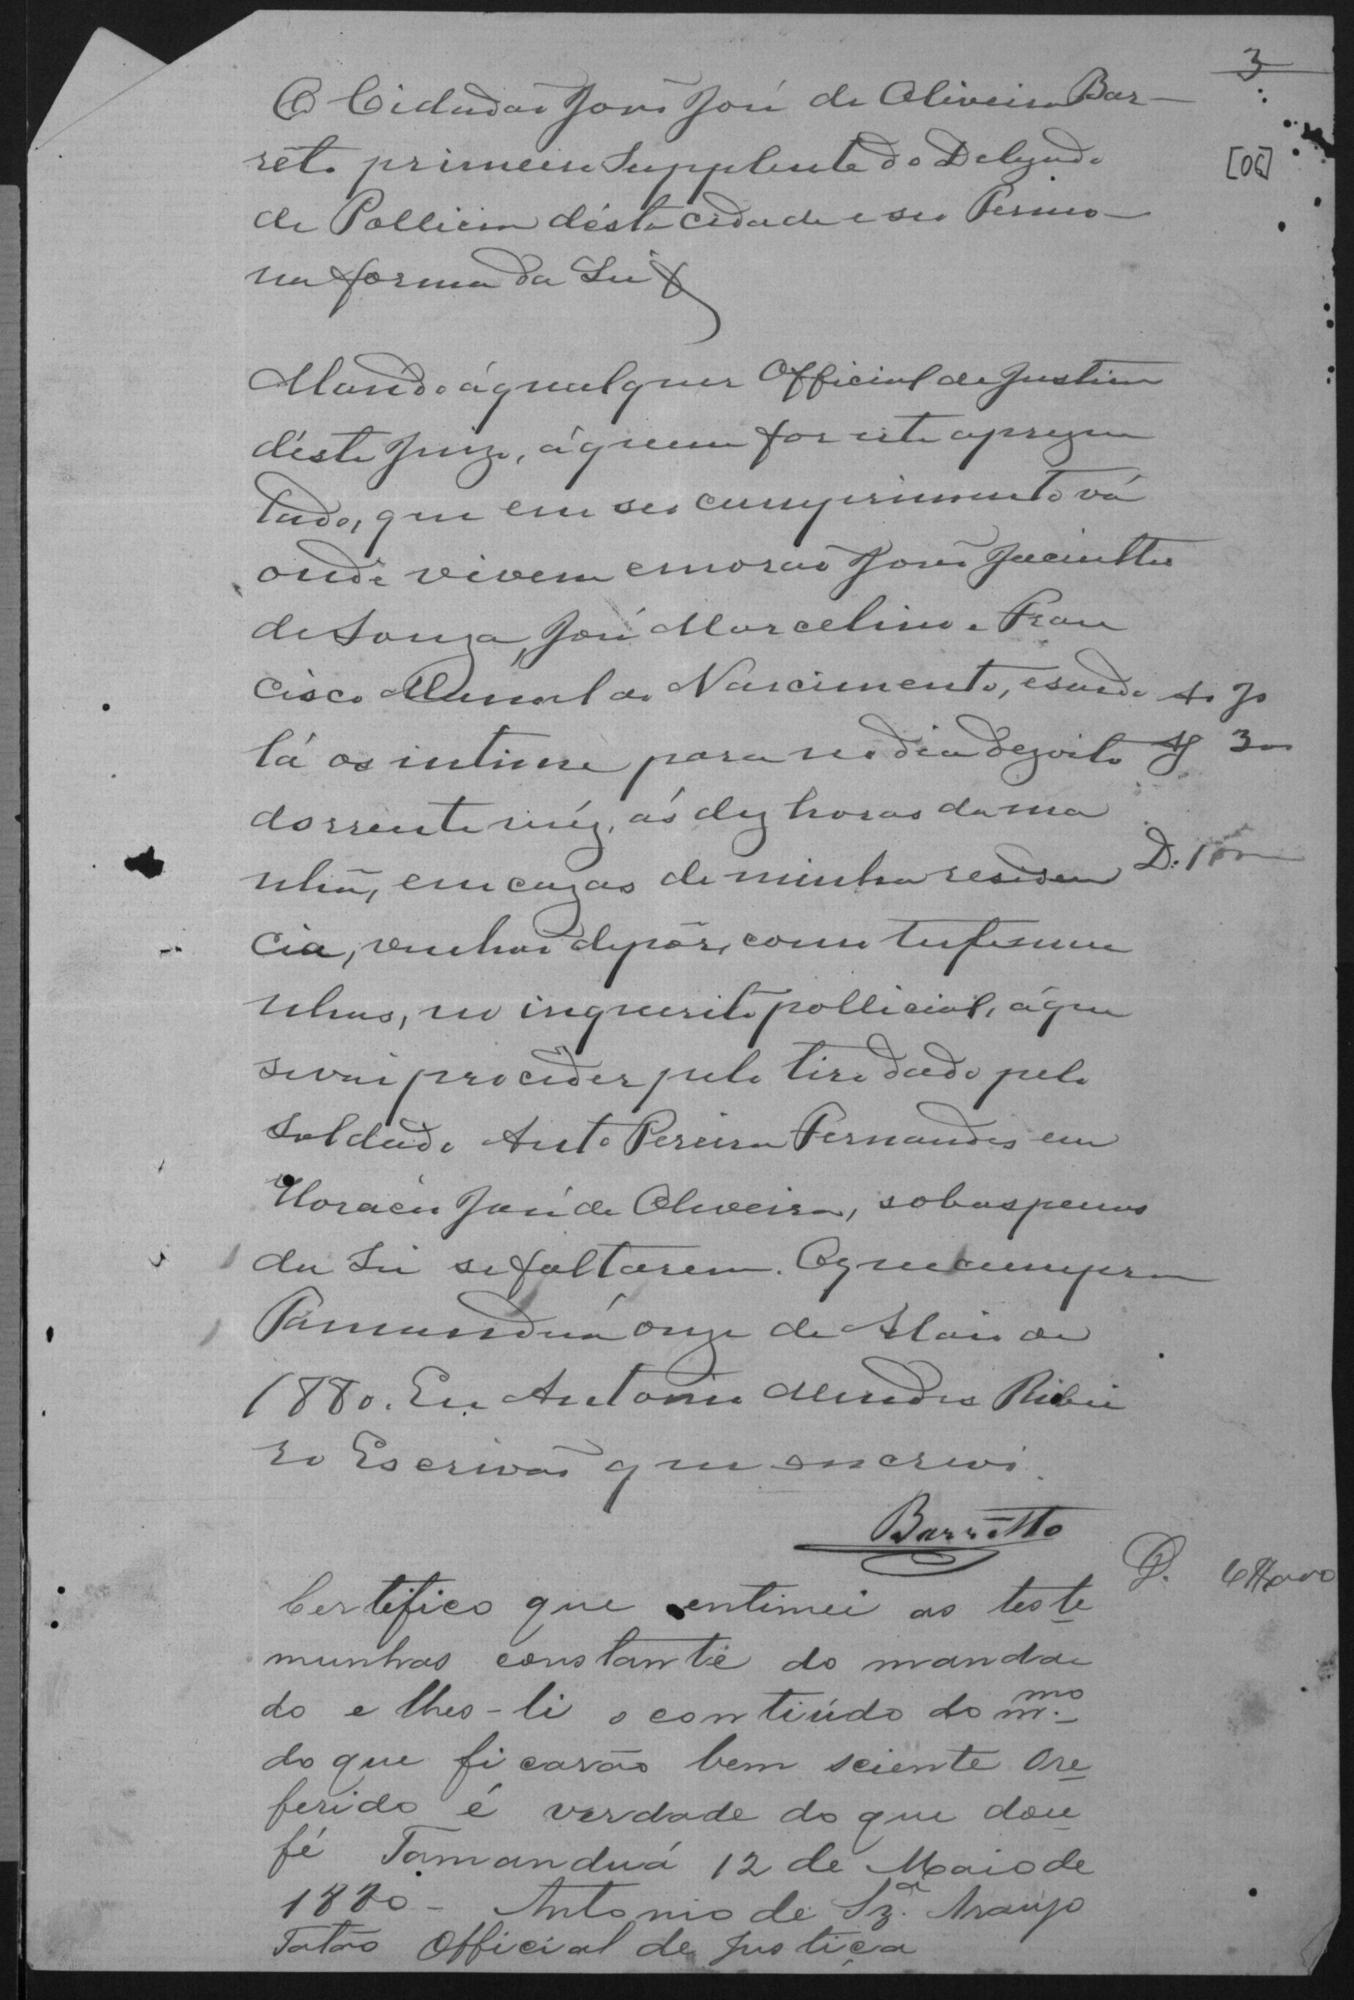 3
[06]
O Cidadão João José de Oliveira Bar-
reto primeiro Supplente do Delegado
de Pollicia désta cidade e seo Termo
na forma da Lei
Mando á qualquer Official de Justiça
déste Juizo, á quem for este aprezen
tado, que em seo cumprimento vá
onde vivem e morão João Jacintho
de Souza, José Marcelino e Fran
cisco Manoel do Nascimento, e sendo
lá os intime para no dia dezoito
dorrente méz, ás dez horas da ma
nhã, em cazas de minha residen
cia, venhão depôr, como testemu
nhas, no inquerito pollicial, á que
se vai proceder pelo tiro dado pelo
soldado Anto Pereira Fernandes em
Horacio José de Oliveira, sob as penas
da Lei se faltarem. O que cumpra
Tamanduá onze de Maio de
1880. Eu Antonio Mendes Ribei
ro Escrivão que escrevi.
Barretto
Certifico que entimei as teste
munhas constante do manda
do e lhes-li o contiúdo do m.mo
do que ficarão bem sciente Ore
ferido é verdade do que dou
fé Tamanduá 12 de Maio de
1880 - Antonio de Sz.a Araujo
Official de Justiça